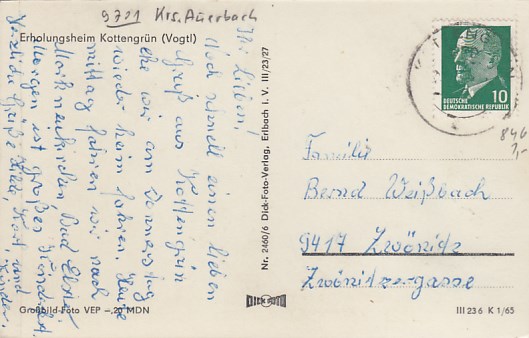 9701 Krs. Auerbach
Erholungsheim Kottengrün (Vogtl)
Ihr Lieben!
Noch schnell einen lieben
Gruß aus Kottengrün
ehe wir am Donnerstag
wieder heim fahren. Heute
mittag fahren wir nach
Markneukirchen Bad Elster
Morgen ist großer
Herzliche Grüße und
Kinder.
Großbild-Foto VEP –,20 MDN
Nr. 2460/6 Dick-Foto-Verlag, Erlbach i. V. III/23/27
DICK FOTO
10
DEUTSCHE
DEMOKRATISCHE REPUBLIK
846
1,-
Familie
Bernd Weißbach
9417 Zwönitz
Zwönitzergasse
III 23 6 K 1/65